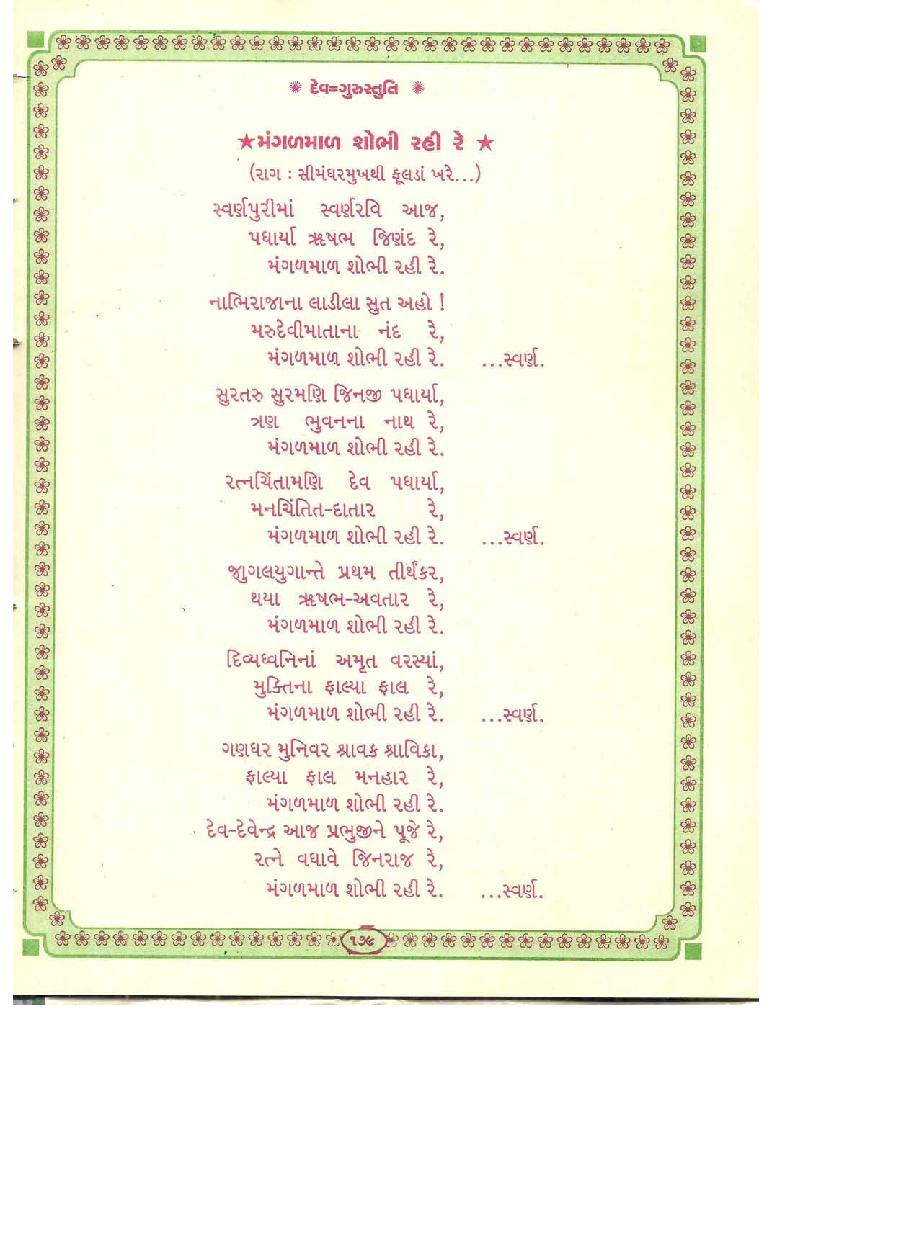 ✺ દેવ=ગુરુસ્તુતિ ✺
★મંગળમાળ શોભી રહી રે ★
(રાગ : સીમંધરમુખથી ફૂલડાં ખરે...)
સ્વર્ણપુરીમાં સ્વર્ણરવિ આજ,
પધાર્યા ઋષભ જિણંદ રે,
મંગળમાળ શોભી રહી રે.
નાભિરાજાના લાડીલા સુત અહો !
મરુદેવીમાતાના નંદ રે,
મંગળમાળ શોભી રહી રે. ...સ્વર્ણ.
સુરતરુ સુરમણિ જિનજી પધાર્યા,
ત્રણ ભુવનના નાથ રે,
મંગળમાળ શોભી રહી રે.
રત્નચિંતામણિ દેવ પધાર્યા,
મનચિંતિત-દાતાર રે,
મંગળમાળ શોભી રહી રે. ...સ્વર્ણ.
જાુગલયુગાન્તે પ્રથમ તીર્થંકર,
થયા ઋષભ-અવતાર રે,
મંગળમાળ શોભી રહી રે.
દિવ્યધ્વનિનાં અમૃત વરસ્યાં,
મુક્તિના ફાલ્યા ફાલ રે,
મંગળમાળ શોભી રહી રે. ...સ્વર્ણ.
ગણધર મુનિવર શ્રાવક શ્રાવિકા,
ફાલ્યા ફાલ મનહાર રે,
મંગળમાળ શોભી રહી રે.
દેવ-દેવેન્દ્ર આજ પ્રભુજીને પૂજે રે,
રત્ને વધાવે જિનરાજ રે,
મંગળમાળ શોભી રહી રે. ...સ્વર્ણ.
૧૭૯